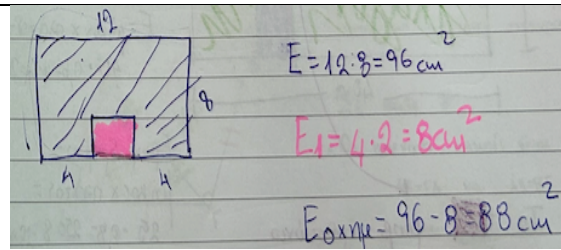 12
E = 12·8 = 96 cm²
8
E₁ = 4·2 = 8cm²
4 4
Eσχημ = 96 - 8 = 88 cm²